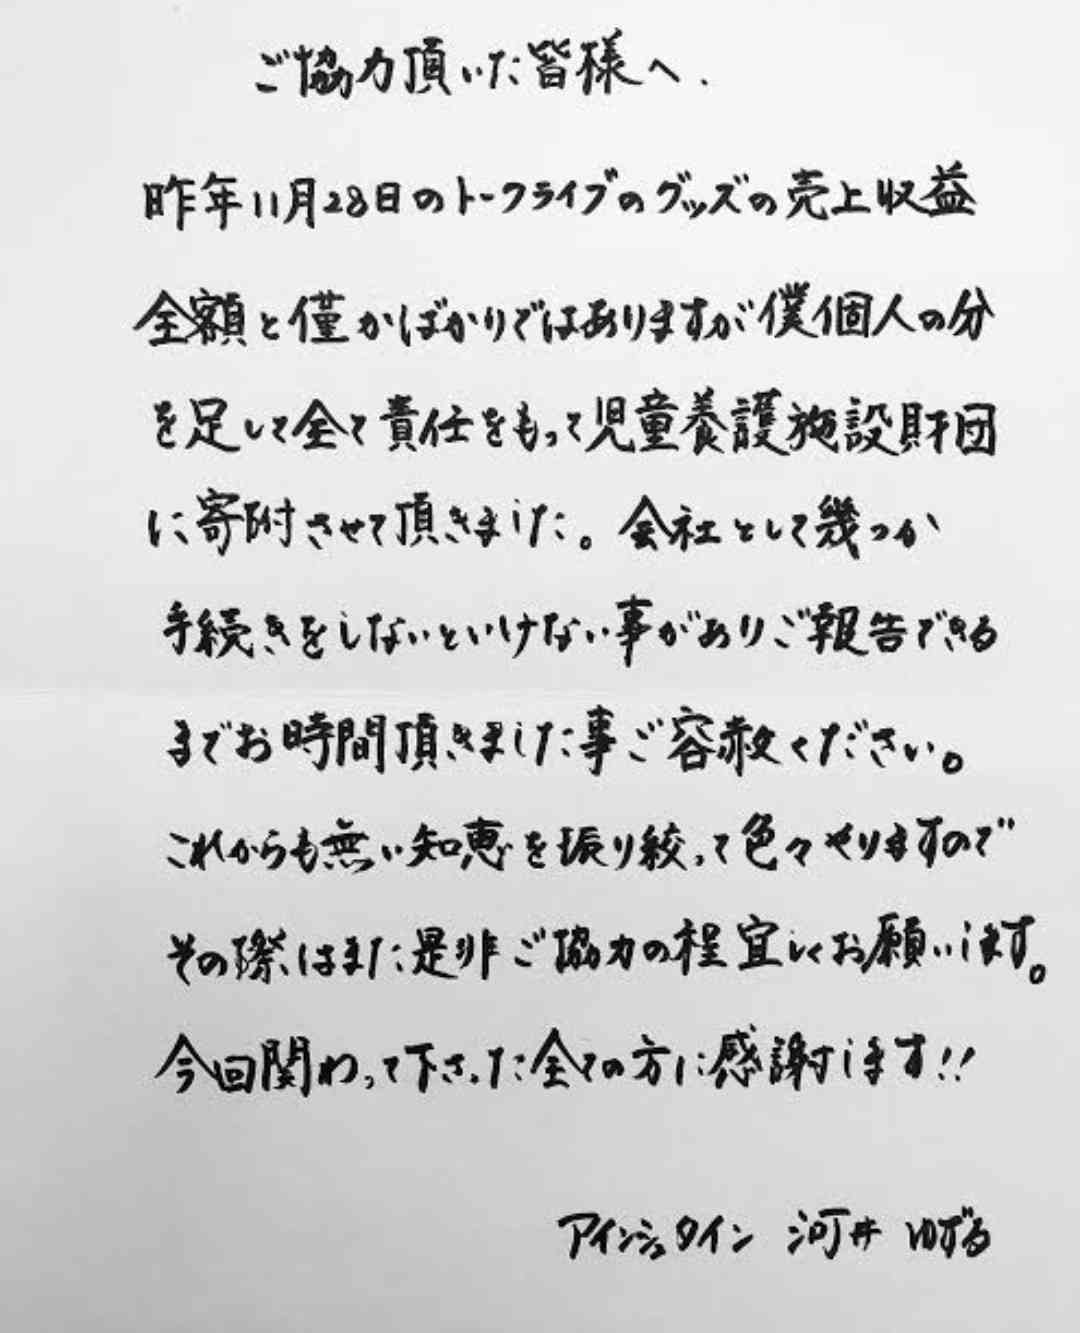 ご協力頂いた皆様へ.
昨年11月28日のトークライブのグッズの売上収益
全額と僅かばかりではありますが僕個人の分
を足して全て責任をもって児童養護施設財団
に寄附させて頂きました。会社として幾つか
手続きをしないといけない事がありご報告できる
までお時間頂きました事ご容赦ください。
これからも無い知恵を振り絞って色々やりますので
その際はまた是非ご協力の程宜しくお願いします。
今回関わって下さった全ての方に感謝します!!
アインシュタイン 河井 ゆずる